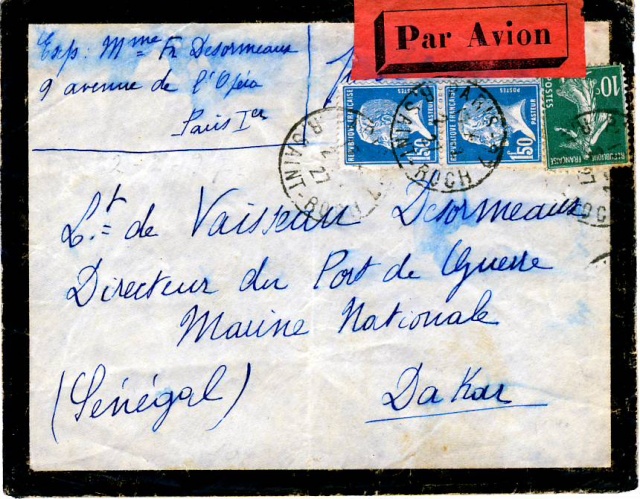 Par Avion
Exp: Mme Fr Desormeaux
9 avenue de l'Opéra
Paris Ier
REPUBLIQUE FRANÇAISE
POSTES
PASTEUR
1F50
REPUBLIQUE FRANÇAISE
POSTES
PASTEUR
1F50
10c
POSTES
REPUBLIQUE FRANÇAISE
PARIS
R. SAINT-ROCH
Lt de Vaisseau Desormeaux
Directeur du Port de Guerre
Marine Nationale
(Sénégal) Dakar